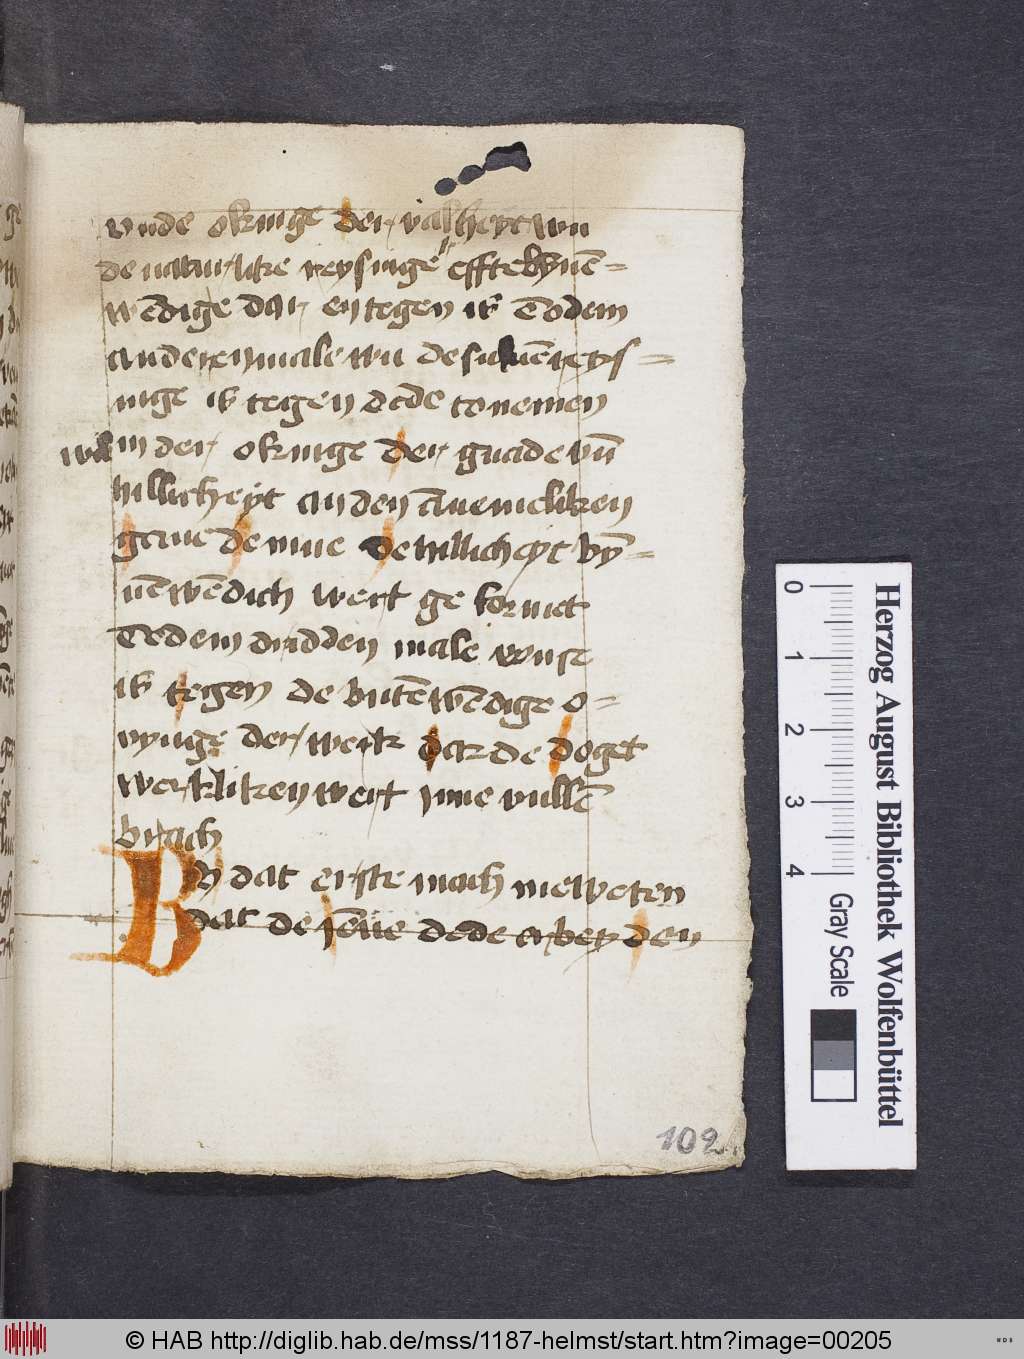 vnde okinge der valheyt wu
de natur like reysinge effte bynē=
wēdige dar en tegen is Todem
anderenmale wu desuluē reys=
inge is tegen dede tonemen
wil in der okinge der gnade vn̄
hillicheyt an den āuemeliken
gaue de mue de hillicheyt by̅=
nēwēdich wert ge formet
Todem dridden male wuse
is tegen de butēwēdige o=
uynge der werk dar de doget
werkliken wert june vullē
brach
By dat erste mach me weten
dat de jēne dede arbeyden
102
Herzog August Bibliothek Wolfenbüttel
0 1 2 3 4 Gray Scale
© HAB http://diglib.hab.de/mss/1187-helmst/start.htm?image=00205